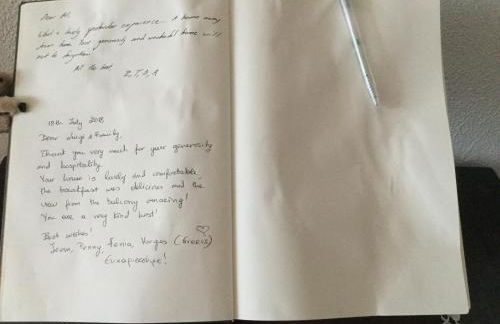 Dear Al,
What a lovely particular experience. A home away
from home. Your generosity and wonderful home will
not be forgotten.
All the best,
18th July 2018
Dear & Family,
Thank you very much for your generosity
and hospitality.
Your house is lovely and comfortable,
the breakfast was delicious and the
view from the balcony amazing!
You are a very kind host!
Best wishes!
Jenny, Xenia, (Greece)